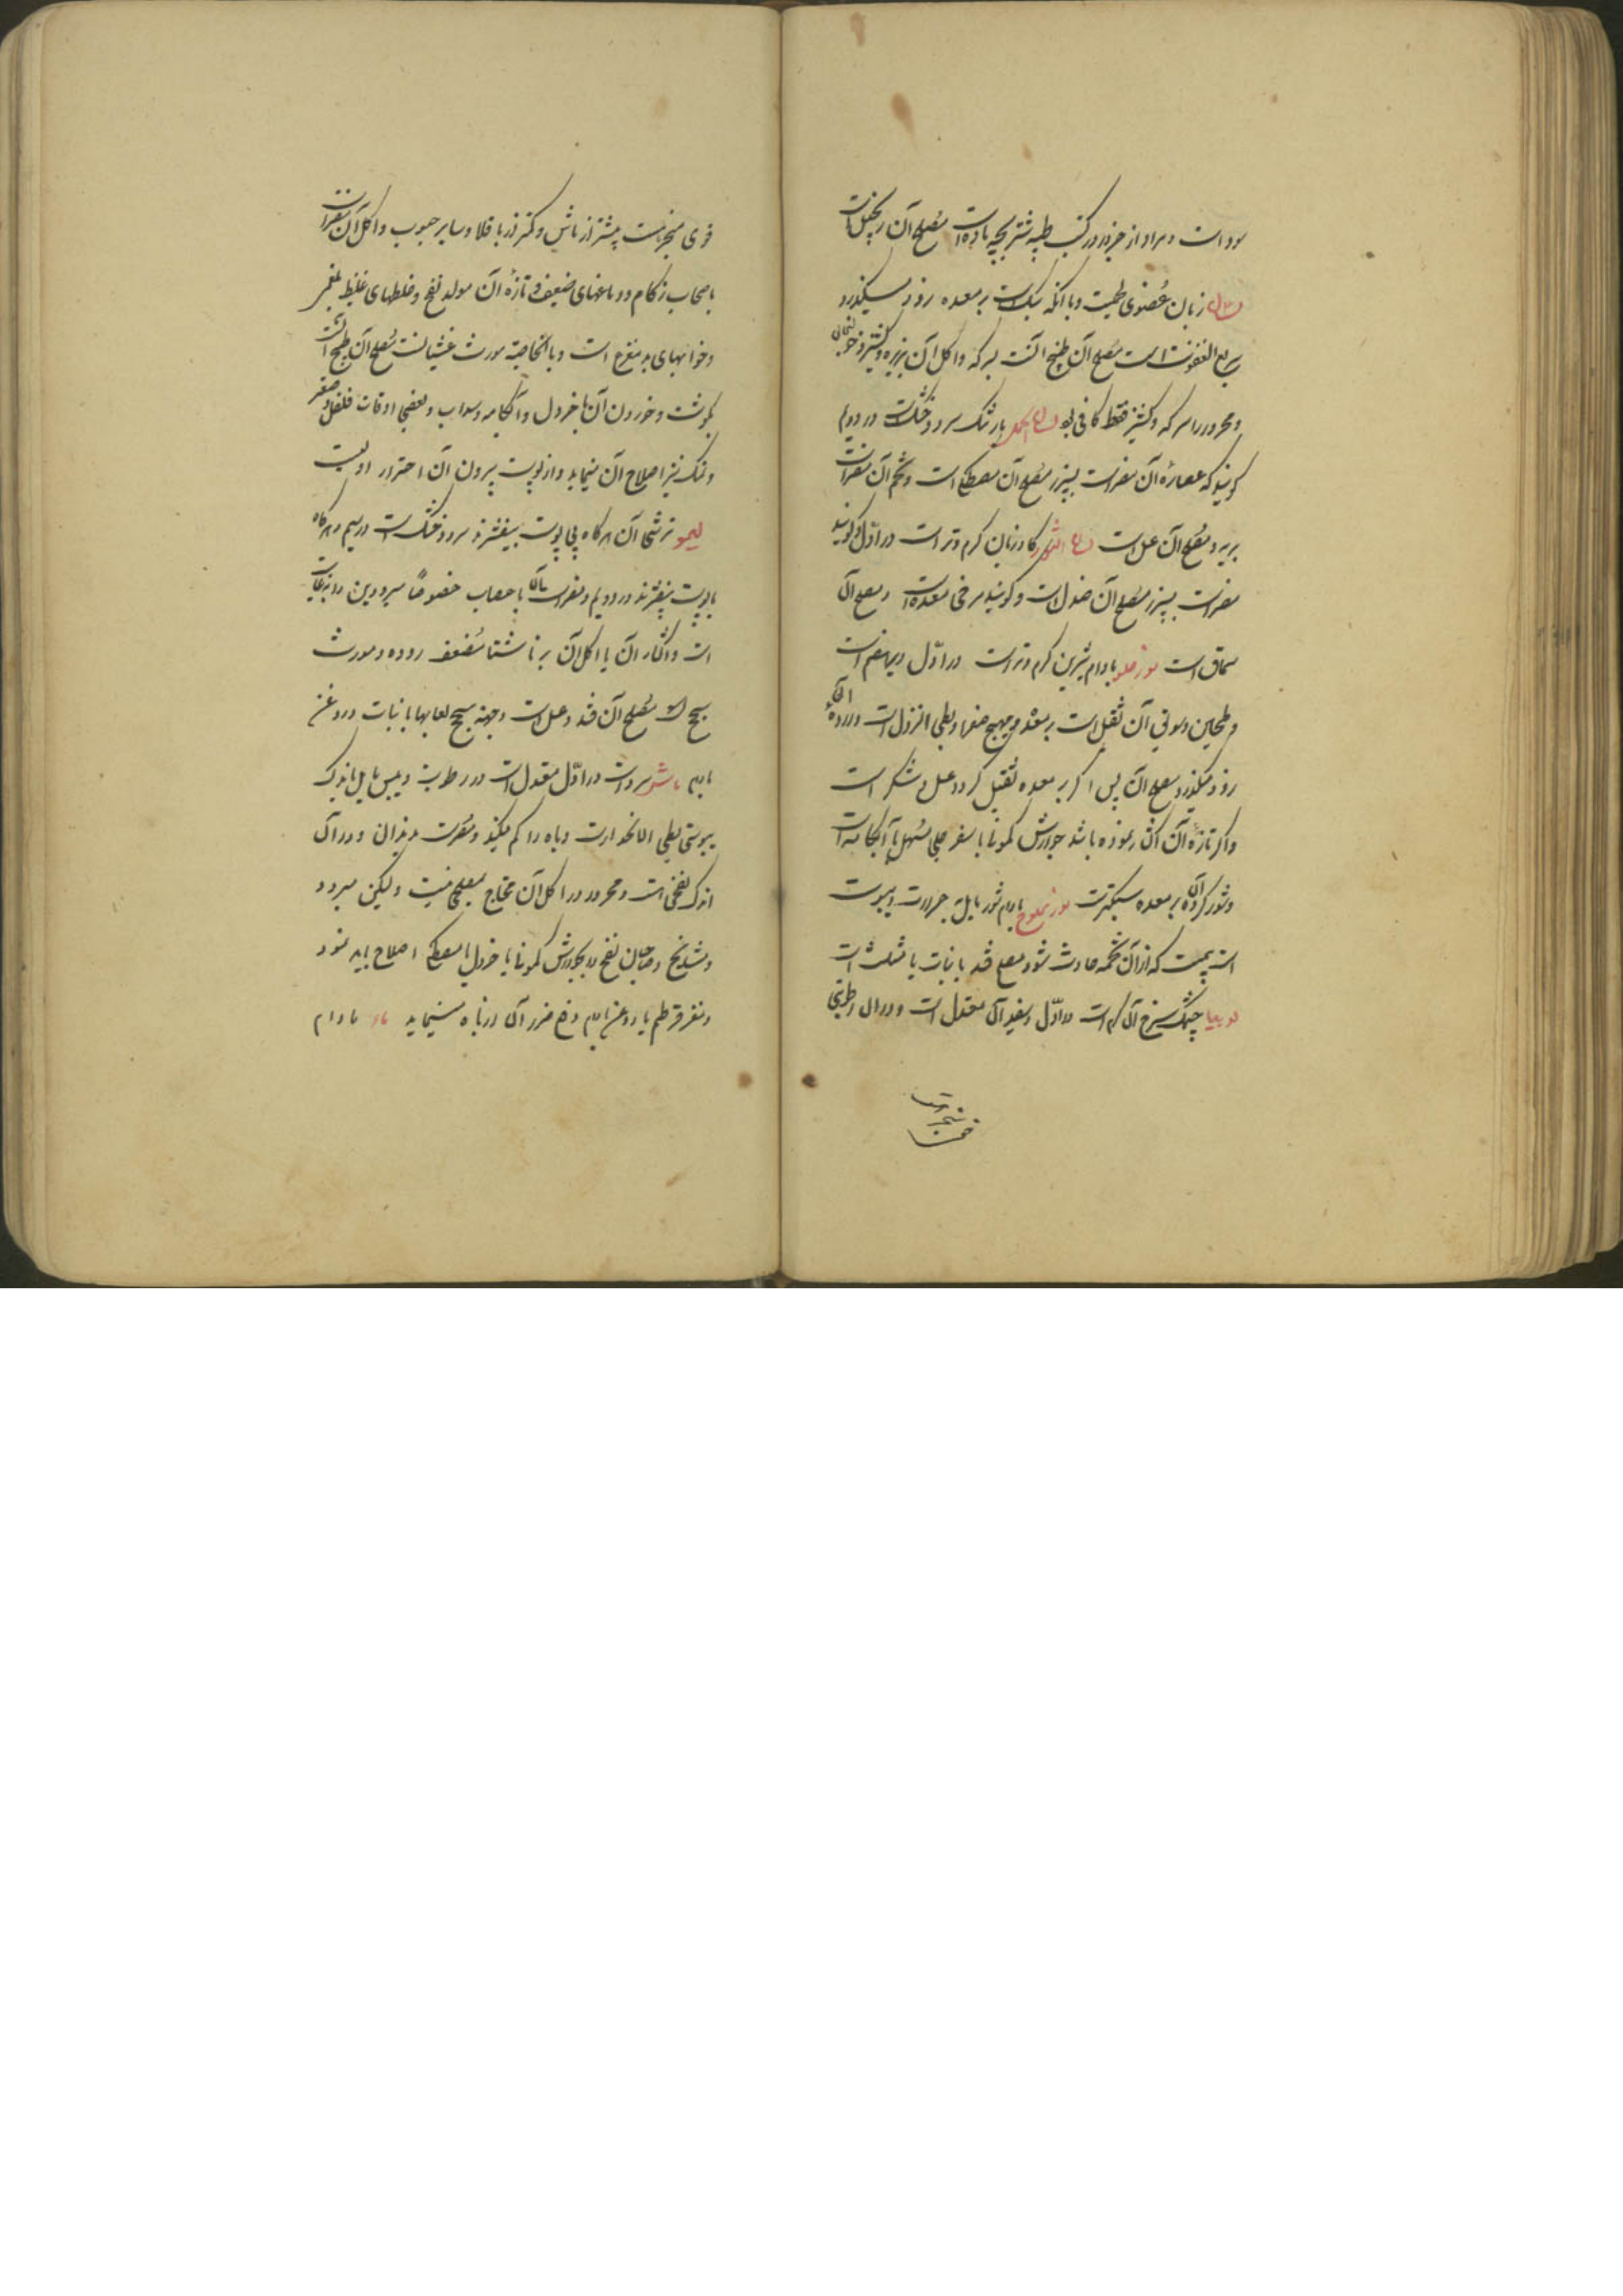 سوداست و مراد از جزور در کتب طبیه شتر بچه ماده است مصلح آن زنجبیل است
لسان زبان عضوی طیب و با آنکه سبک است بر معده زود میگذرد
سریع العفونت است مصلح آن طبخ آنست بسرکه و اکل آن بزیره و کشنیز و خولنجان
و محرور را سرکه و کشنیز فقط کافی بود لسان الحمل بارتنگ سرد و خشک است در دویم
گویند که عصاره آن مضر است بسپرز مصلح آن مصطکی است و تخم آن مضر است
بریه و مصلح آن عسل است لسان الثور گاوزبان گرم و تر است در اول و گویند
مضر است بسپرز مصلح آن صندل است و گویند مرخی معده است و مصلح آن
سماق است لوز حلو بادام شیرین گرم و تر است در اول دیرهضم است
و طحین و سونی آن ثقیل است بر معده و مهیج صفرا و بطی النزول است و در روده
زود میگذرد مصلح آن پس اگر بر معده ثقیل گردد عسل و شکر است
و اگر تازه آن اکثار نموده باشد جوارش کمونا یا سفرجلی مسهل یا آبکامه است
و شور کرده آن بر معده سبکترست لوز مملوح بادام شور مایل بحرارت و یبوست
است پس که از آن تخمه حادث شود مصلح قند یا نبات یا مثلث است
لوبیا چشمک سرخ آن گرم است در اول و سفید آن معتدل است و در آن رطوبتی
قوی منجر است بیشتر از ماش و کمتر از باقلا و سایر حبوب و اکل آن مضر است
باصحاب زکام و دماغهای ضعیف و تازه آن مولد نفخ و خلطهای غلیظ بلغمی
و خوابهای بد مفزع است و بالخاصیه مورث غثیانست مصلح آن طبخ آنست
بگوشت و خوردن آن با خردل و آبکامه و سداب و بعضی اوقات فلفل و صعتر
و نمک نیز اصلاح آن مینماید و از پوست بیرون آن احتراز اولیست
لیمو ترشی آن هرگاه بی پوست بیفشرند سرد و خشک است در سیم و هرگاه
با پوست بیفشرند در دویم و مضر است باعصاب خصوصا مبرودین را بغایت
است و اکثار آن یا اکل آن بر ناشتا مضعف روده و مورث
سحج است مصلح آن قند و عسل است و جهة سحج لعابها با نبات و روغن
بادام ماش سرد است در اول معتدل است در رطوبت و یبس مایل باندک
یبوستی بطی الانحدار است و باه را کم میکند و مضر است بدندان و در آن
اندک نفخی است و محرور در اکل آن محتاج بمصلح نیست ولیکن مبرود
و مشایخ و صاحبان نفخ را بجوارش کمونا یا خردل یا مصطکی اصلاح باید نمود
و مغز قرطم یا روغن بادام دفع ضرر آن در باه مینماید ماء مادام